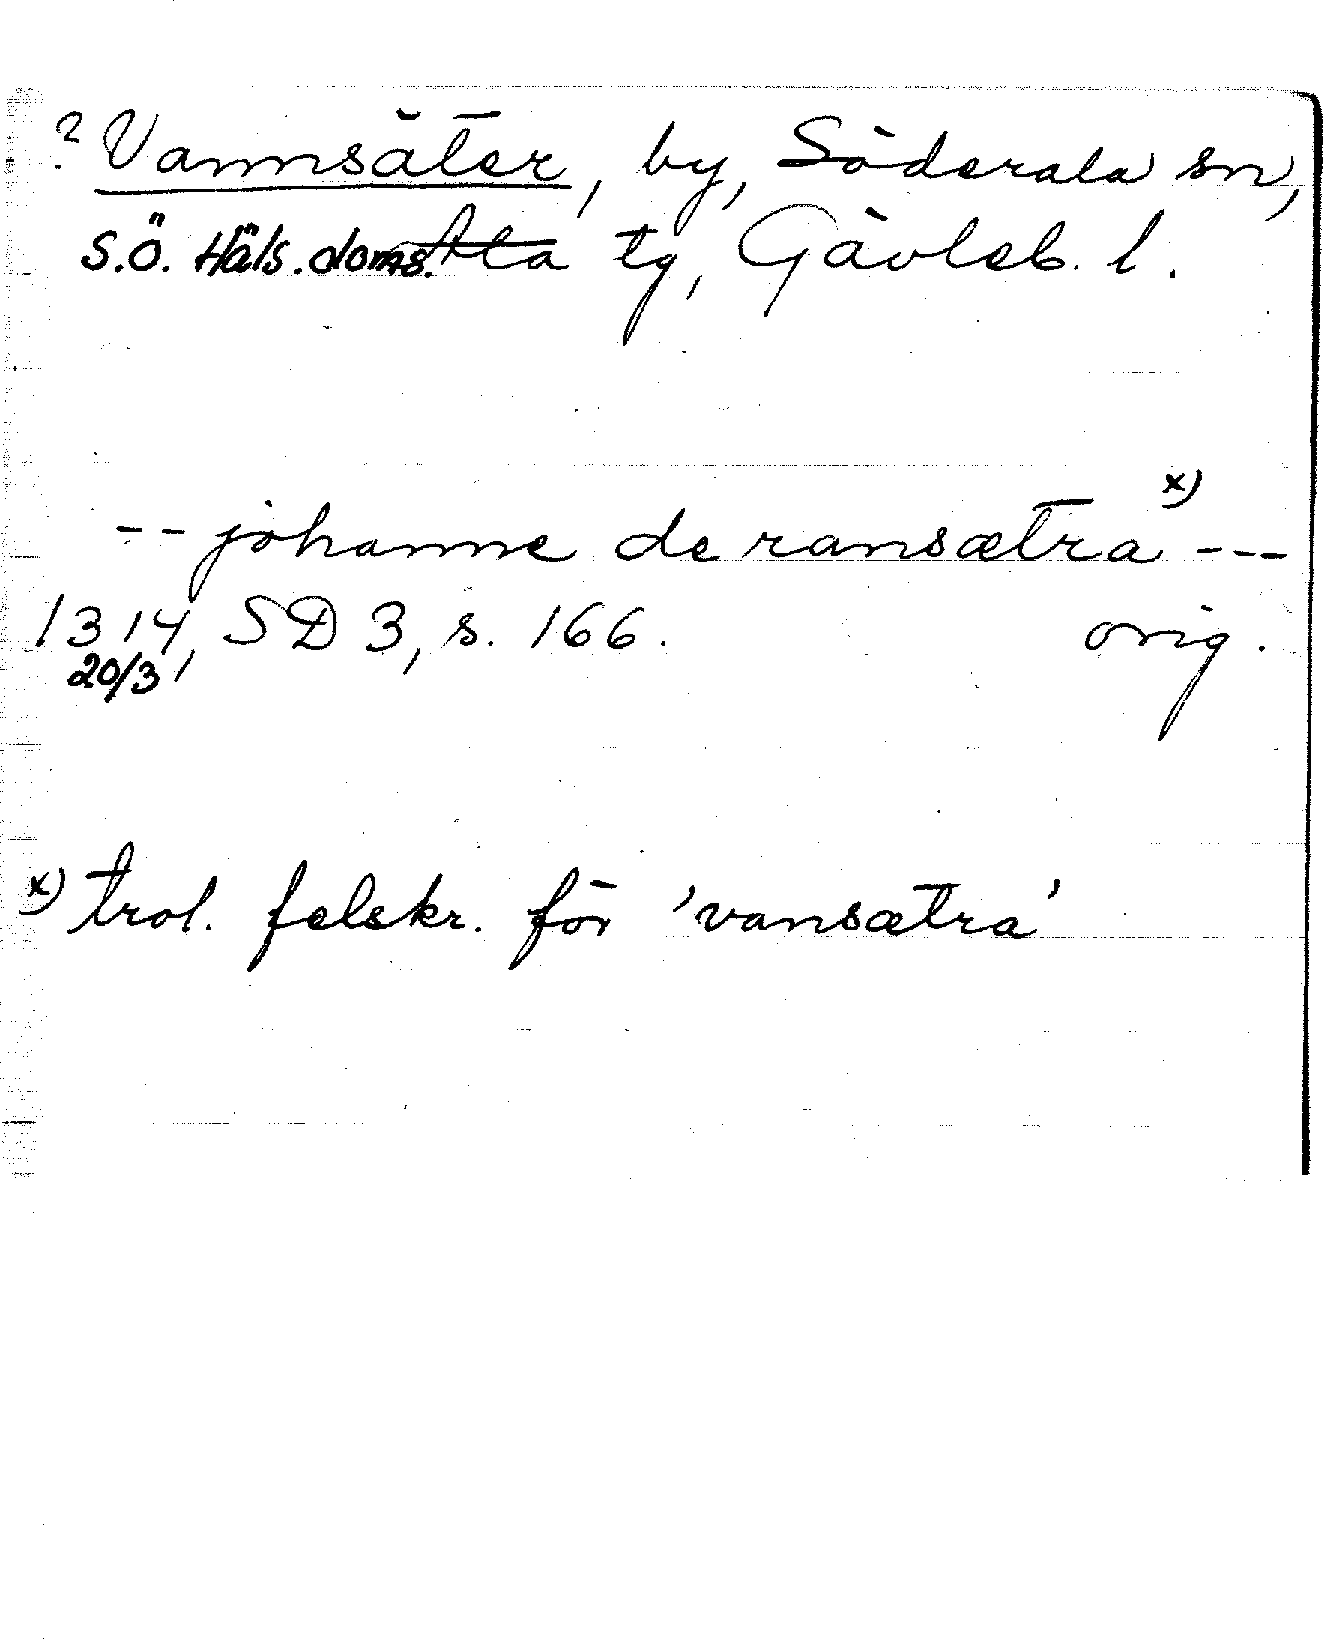 ? Vannsäter, by, Söderala sn,
S.Ö. Häls. doms. Ala tg, Gävleb. l.
-- johanne de ransætra x) ---
1314, SD 3, s. 166. orig.
20/3
x) trol. felskr. för 'vansætra'